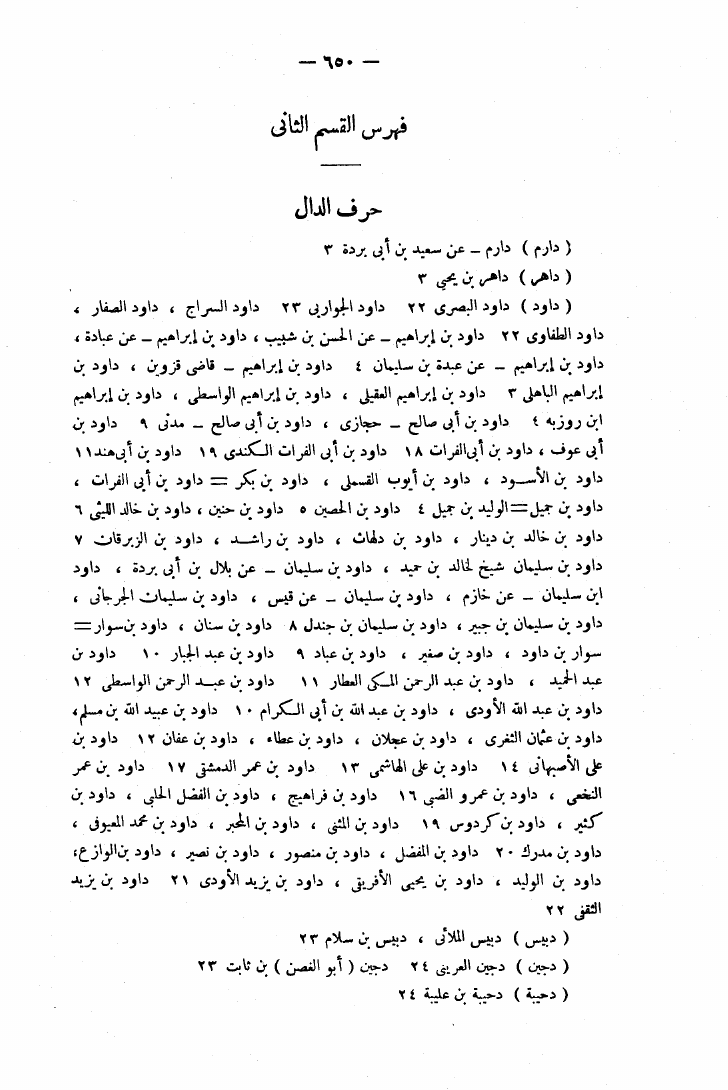 — ٦٥٠ —
فهرس القسم الثانى
حرف الدال
( دارم ) دارم – عن سعيد بن أبى بردة ٣
( داهر ) داهر بن يحيى ٣
( داود ) داود البصرى ٢٢ داود الجواربى ٢٣ داود السراج ، داود الصفار ،
داود الطفاوى ٢٢ داود بن إبراهيم – عن الحسن بن شبيب ، داود بن إبراهيم – عن عبادة ،
داود بن إبراهيم – عن عبدة بن سليمان ٤ داود بن إبراهيم – قاضى قزوين ، داود بن
إبراهيم الباهلى ٣ داود بن إبراهيم العقيلى ، داود بن إبراهيم الواسطى ، داود بن إبراهيم
ابن روزبه ٤ داود بن أبى صالح – حجازى ، داود بن أبى صالح – مدنى ٩ داود بن
أبى عوف ، داود بن أبى الفرات ١٨ داود بن أبى الفرات الكندى ١٩ داود بن أبى هند ١١
داود بن الأسود ، داود بن أيوب القسملى ، داود بن بكر = داود بن أبى الفرات ،
داود بن جميل = الوليد بن جميل ٤ داود بن الحصين ٥ داود بن حنين ، داود بن خالد الليثى ٦
داود بن خالد بن دينار ، داود بن دلهاث ، داود بن راشد ، داود بن الزبرقان ٧
داود بن سليمان شيخ لخالد بن حميد ، داود بن سليمان – عن بلال بن أبى بردة ، داود
ابن سليمان – عن خازم ، داود بن سليمان – عن قيس ، داود بن سليمان الجرجانى ،
داود بن سليمان بن جبير ، داود بن سليمان بن جندل ٨ داود بن سنان ، داود بن سوار =
سوار بن داود ، داود بن صغير ، داود بن عباد ٩ داود بن عبد الجبار ١٠ داود بن
عبد الحميد ، داود بن عبد الرحمن المكى العطار ١١ داود بن عبد الرحمن الواسطى ١٢
داود بن عبد الله الأودى ، داود بن عبد الله بن أبى الكرام ١٠ داود بن عبيد الله بن مسلم ،
داود بن عثمان الثغرى ، داود بن عجلان ، داود بن عطاء ، داود بن عفان ١٢ داود بن
على الأصبهانى ١٤ داود بن على الهاشمى ١٣ داود بن عمر الدمشقى ١٧ داود بن عمر
النخعى ، داود بن عمرو الضبى ١٦ داود بن فراهيج ، داود بن الفضل الحلبى ، داود بن
كثير ، داود بن كردوس ١٩ داود بن المثنى ، داود بن المحبر ، داود بن محمد المعيوفى ،
داود بن مدرك ٢٠ داود بن المفضل ، داود بن منصور ، داود بن نصير ، داود بن الوازع ،
داود بن الوليد ، داود بن يحيى الأفريقى ، داود بن يزيد الأودى ٢١ داود بن يزيد
الثقفى ٢٢
( دبيس ) دبيس الملائى ، دبيس بن سلام ٢٣
( دجين ) دجين العرينى ٢٤ دجين ( أبو الغصن ) بن ثابت ٢٣
( دحيبة ) دحيبة بن عليبة ٢٤